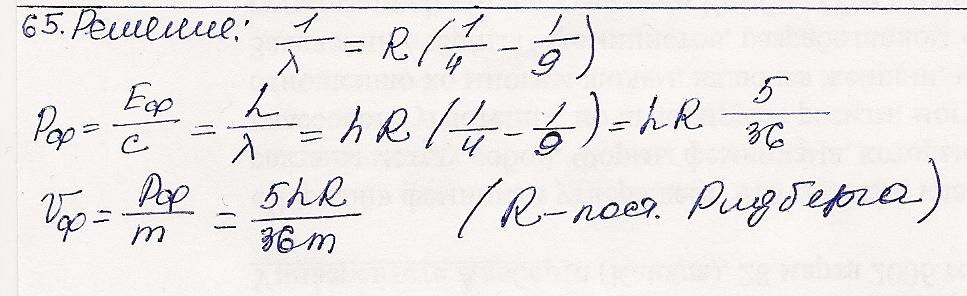 65. Решение: 1/λ = R (1/4 − 1/9)
Pф = Eф/c = h/λ = hR (1/4 − 1/9) = hR 5/36
Vф = Pф/m = 5hR/36m (R – пост. Ридберга)